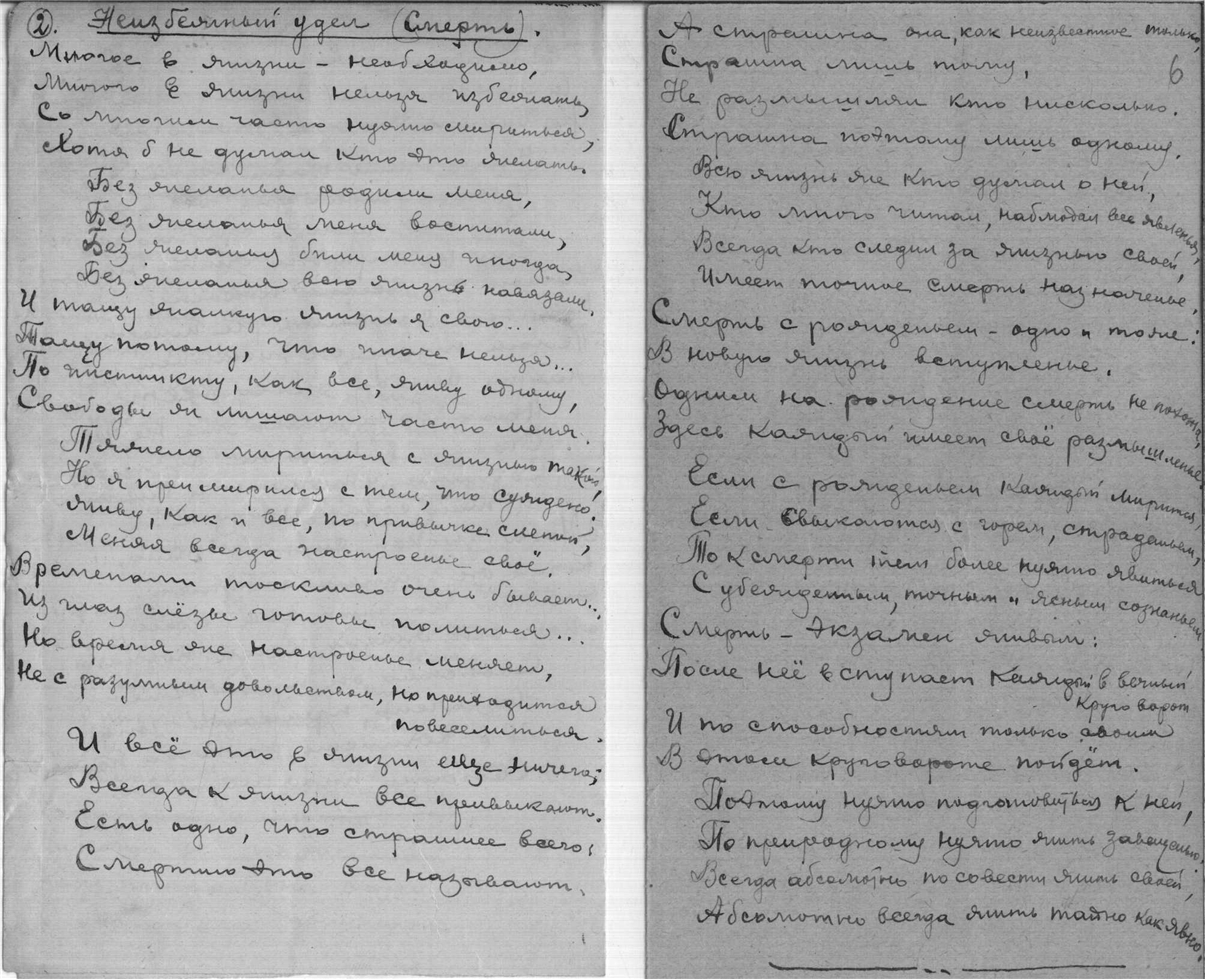 2. Неизбежный удел (Смерть).
Многое в жизни – необходимо,
Многого в жизни нельзя избежать,
Со многим часто нужно смириться,
Хотя б не думал кто это желать.
Без желанья родили меня,
Без желанья меня воспитали,
Без желанья били меня иногда,
Без желанья всю жизнь навязали.
И тащу жалкую жизнь я свою...
Тащу потому, что иначе нельзя...
По инстинкту, как все, живу одному,
Свободы ж лишают часто меня.
Тяжело мириться с жизнью такой,
Но я примирился с тем, что суждено.
Живу, как и все, по привычке слепой,
Меняя всегда настроенье своё.
Временами тоскливо очень бывает...
Из глаз слёзы готовы политься...
Но время же настроенье меняет,
Не с разумным довольством, но приходится
повеселиться.
И всё это в жизни еще ничего;
Всегда к жизни все привыкают.
Есть одно, что страшнее всего:
Смертию это все называют.
6
А страшна она, как неизвестное только,
Страшна лишь тому,
Не размышлял кто нисколько.
Страшна поэтому лишь одному.
Всю жизнь же кто думал о ней,
Кто много читал, наблюдал все явленья,
Всегда кто следил за жизнью своей,
Имеет точное смерть назначенье.
Смерть с рожденьем – одно и то же:
В новую жизнь вступленье.
Одним на рождение смерть не похожа,
Здесь каждый имеет своё размышленье.
Если с рожденьем каждый мирится,
Если свыкаются с горем, страданьем,
То к смерти тем более нужно явиться
С убежденным, точным и ясным сознаньем.
Смерть – экзамен живым:
После неё вступает каждый в вечный
круговорот
И по способностям только своим
В этом круговороте пойдёт.
Поэтому нужно подготовиться к ней,
По природному нужно жить завещенью.
Всегда абсолютно по совести жить своей,
Абсолютно всегда жить тайно как явно.